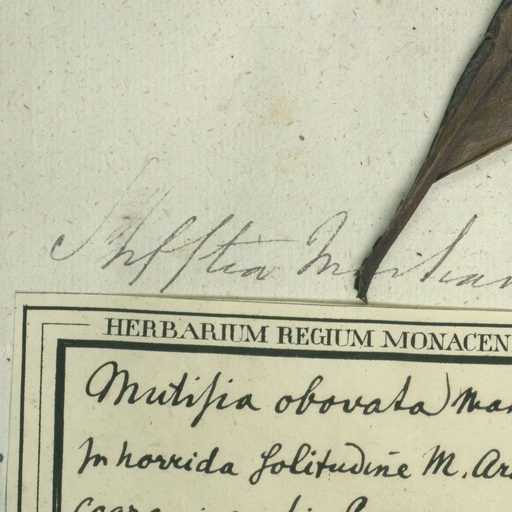 Stifftia Martian
HERBARIUM REGIUM MONACEN
Mutisia obovata Mar
In horrida solitudine M. Ar